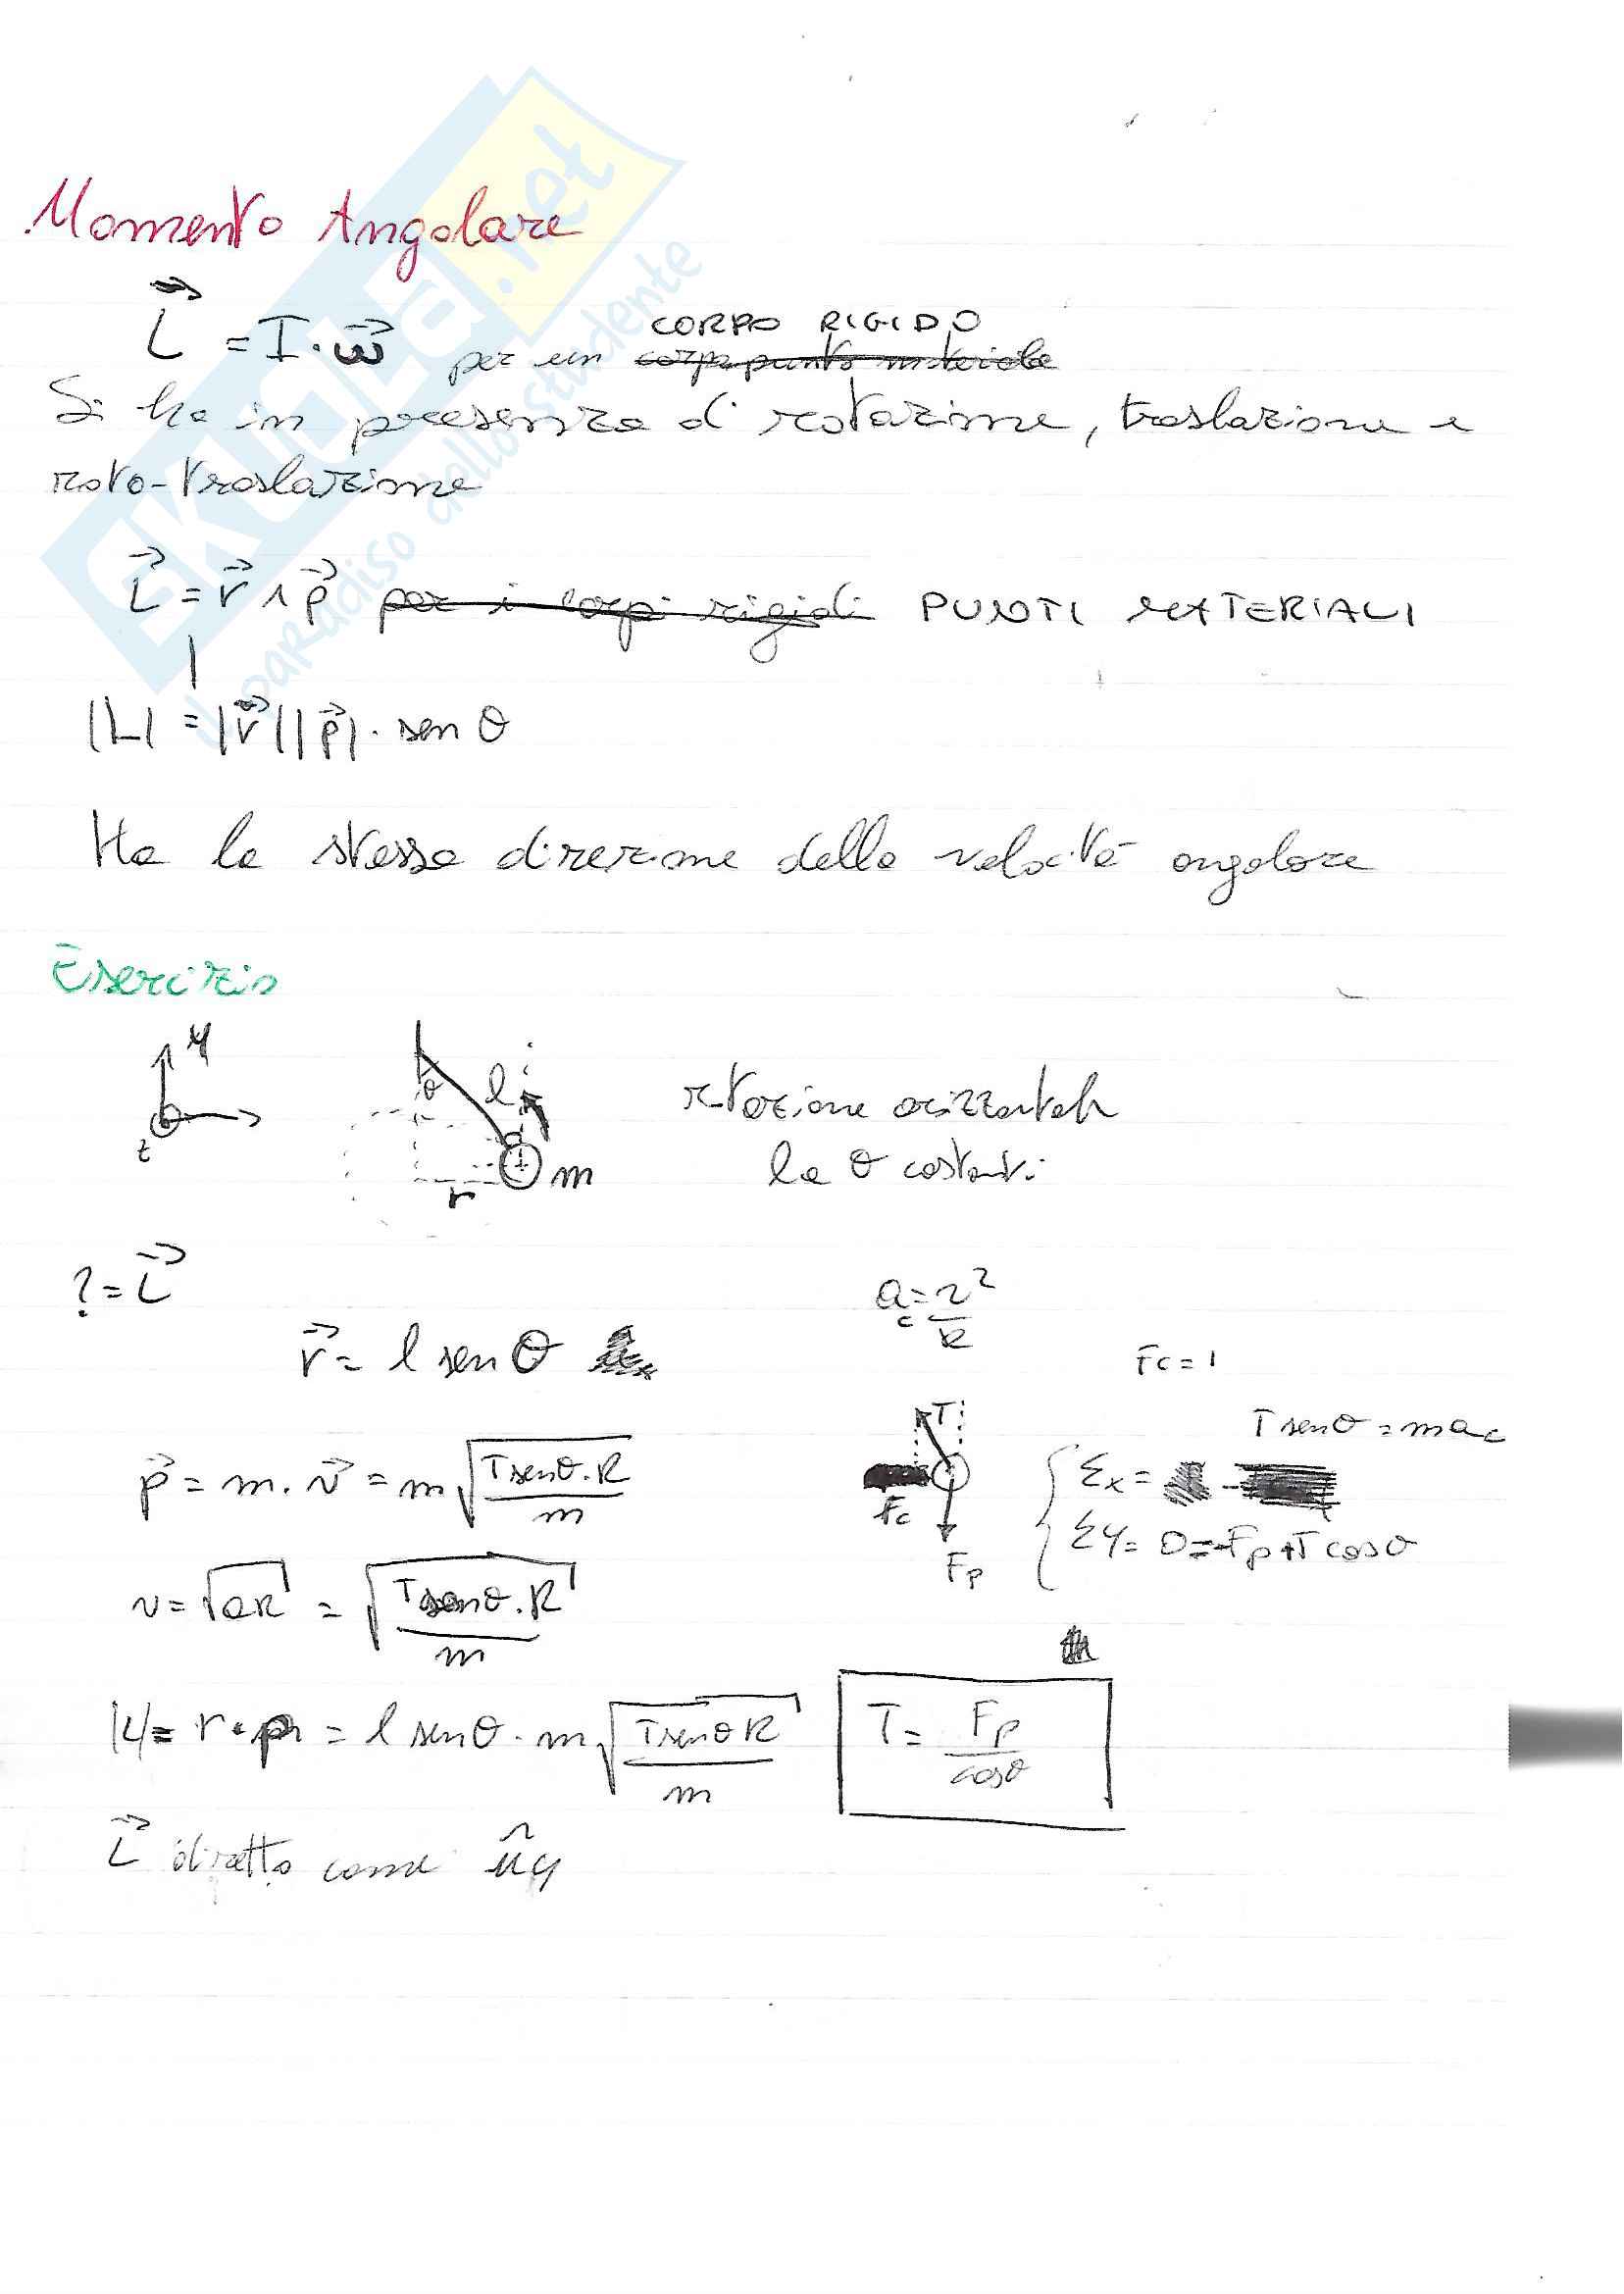 Momento Angolare
L⃗ = I · ω⃗ per un CORPO RIGIDO
Si ha in presenza di rotazione, traslazione e
roto-traslazione
L⃗ = r⃗ ∧ p⃗ per i corpi rigidi PUNTI MATERIALI
|L| = |r⃗||p⃗| · sen θ
Ha la stessa direzione della velocità angolare
Esercizio
y
z
θ l
m
r
rotazione orizzontale
l e θ costanti
? = L⃗
a_c = v²/R
r⃗ = l sen θ
Fc = 1
T
Fc
Fp
T sen θ = m a_c
Σx =
Σy = 0 = -Fp + T cos θ
p⃗ = m · v⃗ = m √(T sen θ · R / m)
v = √(aR) = √(T sen θ · R / m)
|L| = r · p = l sen θ · m √(T sen θ R / m)
T = Fp / cos θ
L⃗ diretto come ûy
SKUOLA.net
il paradiso dello studente